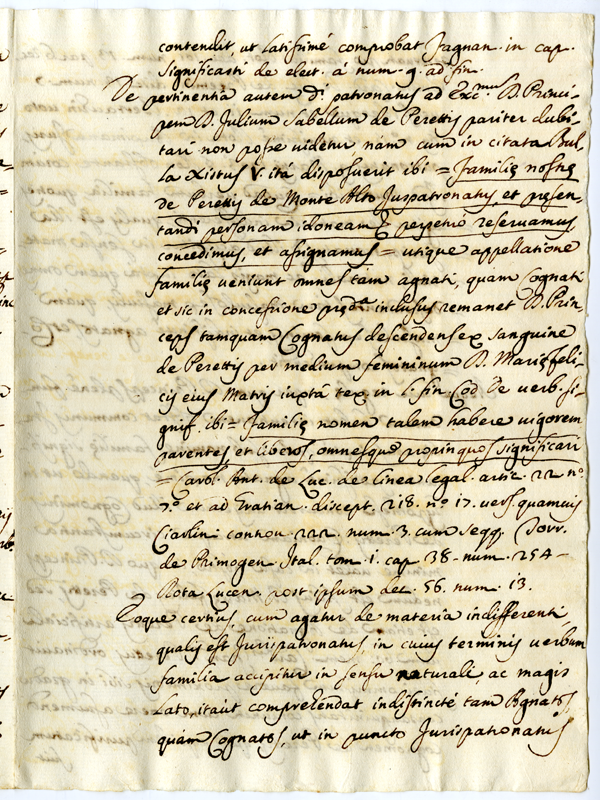 contendit, ut latissimé comprobat Fagnan. in cap.
significasti de elect. á num. 9. ad fin.
De pertinentia autem dī patronatus ad Exc.mum D. Princi-
pem D. Julium Sabellum de Perettis pariter dubi-
tari non posse videtur nám cum in citata Bul-
la Xistus V. itá disposuerit ibi = Familię nostrę
de Perettis de Monte Alto Juspatronatus, et presen-
tandi personam idoneam perpetuo reservamus
concedimus, et assignamus = utique appellatione
familię veniunt omnes tam agnati, quàm Cognati
et sic in concessione prędta inclusus remanet D. Prin-
ceps tamquam Cognatus descendens ex sanguine
de Perettis per medium femininum D. Marię feli-
cis eius Matris iuxtà tex. in l. fin. Cod. De verb. si-
gnif. ibi = Familię nomen talem habere vigorem
parentes et liberos, omnesque propinquos significari
= Carol. Ant. de Luc. de linea legal. artic. 22 nº
7.º et ad Gratian. discept. 218. nº 17. vers. quamvis
Ciarlin. controv. 222. num. 3. cum seqq. Torr.
de Primogen. Ital. tom. 1. cap. 38. num. 254 -
Rota Lucen. post ipsum dec. 56. num. 13.
Eoque certius, cum agatur de materia indifferenti,
qualis est Jurispatronatus in cuius terminis verbum
familia accipitur in sensu naturali ac magis
lato, itaut comprehendat indistincté tam Agnatos,
quàm Cognatos, ut in puncto Jurispatronatus